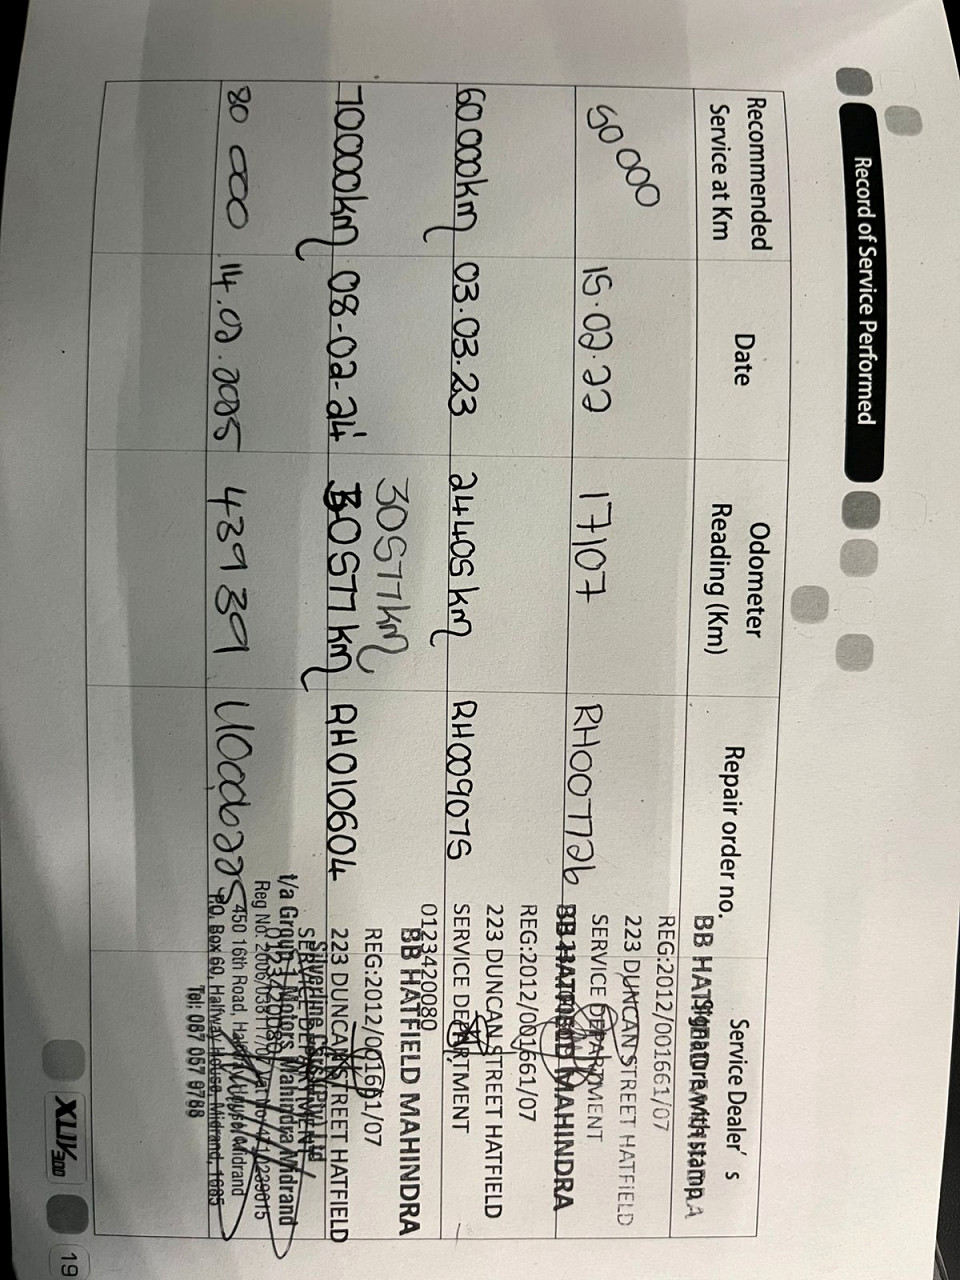 Record of Service Performed
Recommended
Service at Km
Date
Odometer
Reading (Km)
Repair order no.
Service Dealer's
Signature with stamp
BB HATFIELD MAHINDRA
REG:2012/001661/07
223 DUNCAN STREET HATFIELD
SERVICE DEPARTMENT
50 000
15.02.22
17107
RH007726
BB HATFIELD MAHINDRA
REG:2012/001661/07
223 DUNCAN STREET HATFIELD
SERVICE DEPARTMENT
0123420080
60 000km
03.03.23
24405 km
RH009075
BB HATFIELD MAHINDRA
REG:2012/001661/07
223 DUNCAN STREET HATFIELD
SERVICE DEPARTMENT
0123420080
30577km
70000km
08-02-24
30577 km
RH010604
t/a Group 1 Motors Mahindra Midrand
450 16th Road, Midrand
P.O. Box 60, Halfway House, Midrand, 1685
Tel: 087 057 9788
80 000
14.02.2025
43939
U0006225
XUV300
19